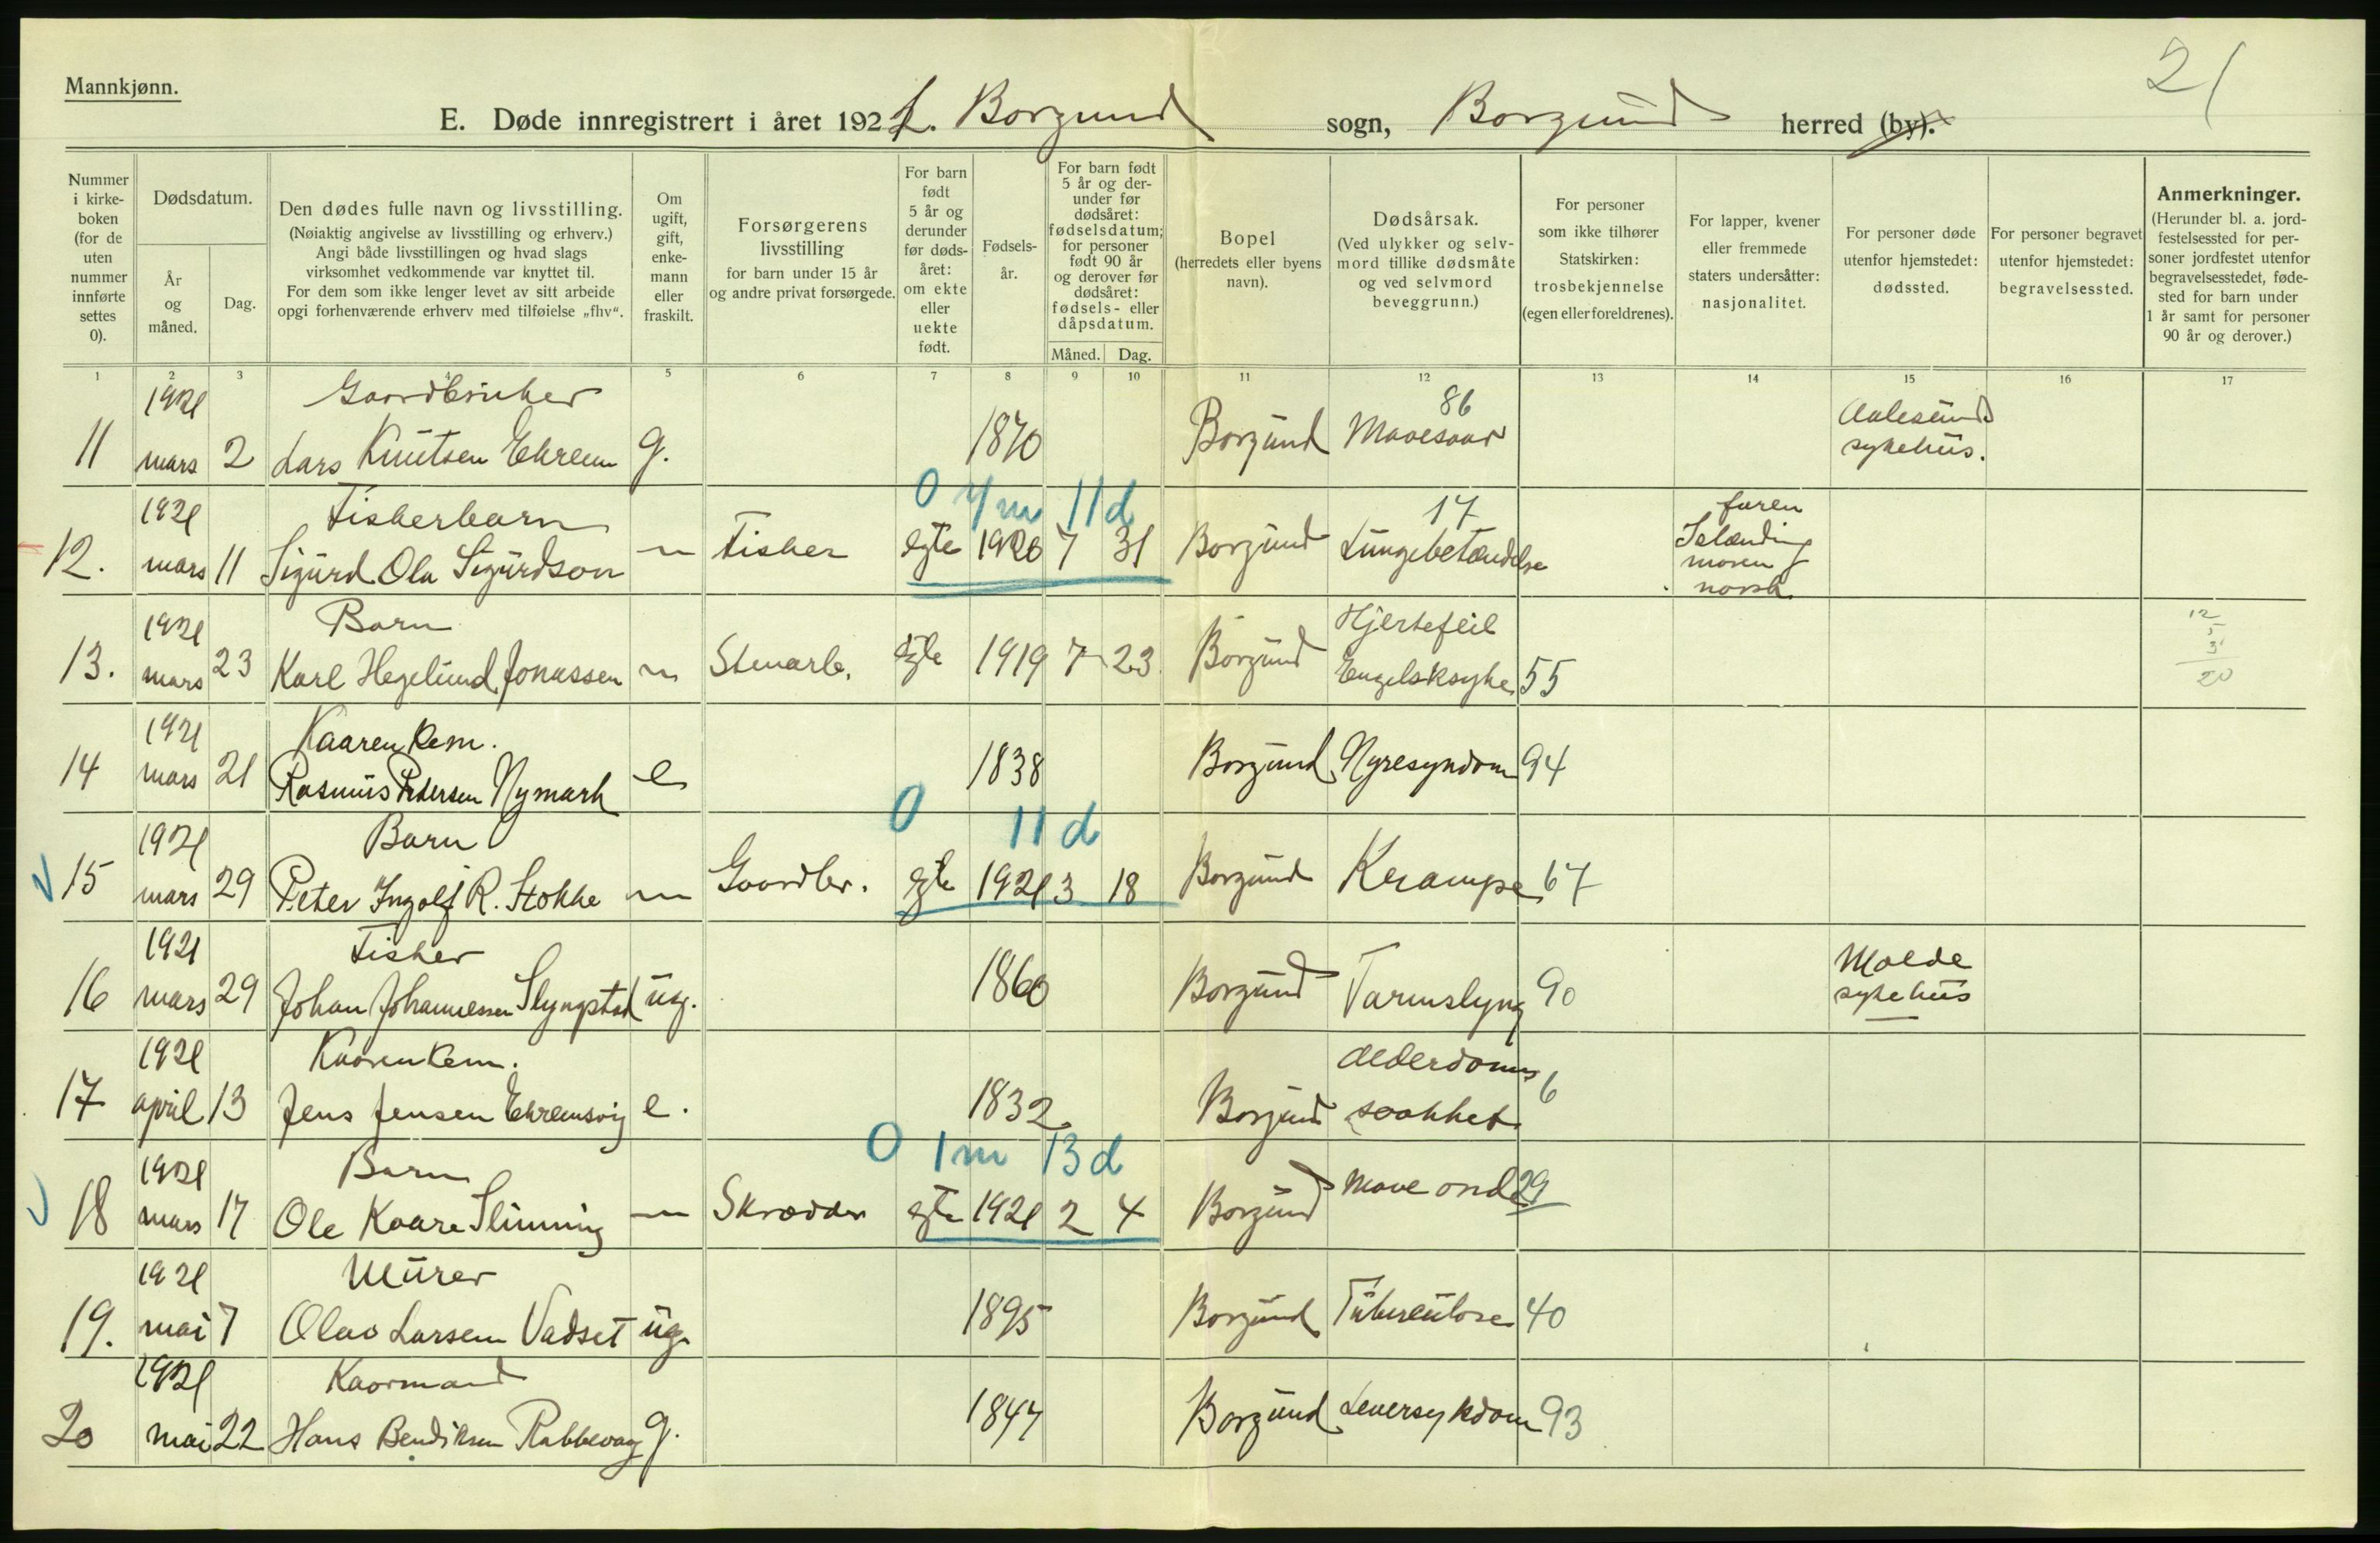 Mannkjønn.
21
E. Døde innregistrert i året 1921. Borgund sogn, Borgund herred (by).
Nummer i kirke-boken (for de uten nummer innførte settes 0).
Dødsdatum.
År og måned.
Dag.
Den dødes fulle navn og livsstilling.
(Nøiaktig angivelse av livsstilling og erhverv.)
Angi både livsstillingen og hvad slags
virksomhet vedkommende var knyttet til.
For dem som ikke lenger levet av sitt arbeide
opgi forhenværende erhverv med tilføielse „fhv“.
Om ugift, gift, enke-mann eller fraskilt.
Forsørgerens livsstilling
for barn under 15 år
og andre privat forsørgede.
For barn født 5 år og derunder før døds-året: om ekte eller uekte født.
Fødsels-år.
For barn født 5 år og der-under før dødsåret: fødselsdatum; for personer født 90 år og derover før dødsåret: fødsels- eller dåpsdatum.
Måned. Dag.
Bopel
(herredets eller byens navn).
Dødsårsak.
(Ved ulykker og selv-mord tillike dødsmåte og ved selvmord beveggrunn.)
For personer som ikke tilhører Statskirken: trosbekjennelse (egen eller foreldrenes).
For lapper, kvener eller fremmede staters undersåtter: nasjonalitet.
For personer døde utenfor hjemstedet: dødssted.
For personer begravet utenfor hjemstedet: begravelsessted.
Anmerkninger.
(Herunder bl. a. jord-festelsessted for per-soner jordfestet utenfor begravelsesstedet, føde-sted for barn under 1 år samt for personer 90 år og derover.)
1 2 3 4 5 6 7 8 9 10 11 12 13 14 15 16 17
1921 Gaardbruker 86 Aalesund
11 mars 2 Lars Knutsen Ekrem g. 1870 Borgund Mavesaar sykehus.
0 7m 11d
1921 Fiskerbarn 17 faren Islænding
12. mars 11 Sigurd Ola Sigurdson — Fisker egte 1920 7 31 Borgund Lungebetændelse moren norsk.
1921 Barn Hjertefeil 12 5 3
13. mars 23 Karl Hegelund Jonassen — Stenarb. egte 1919 7 23 Borgund Engelsksyke 55 20
1921 Kaarenkem.
14 mars 21 Rasmus Pedersen Nymark e 1838 Borgund Nyresyndom 94
0 11d
1921 Barn
15 mars 29 Peter Ingolf R. Stokke — Gaardbr. egte 1921 3 18 Borgund Krampe 67
1921 Fisker Molde
16 mars 29 Johan Johannessen Slyngstad ug. 1860 Borgund Tarmslyng 90 sykehus
1921 Kaarenkem. Alderdoms
17 april 13 Jens Jensen Ekremsvig e. 1832 Borgund svakhet 6
0 1m 13d
1921 Barn
18 mars 17 Ole Kaare Slinning — Skrædder egte 1921 2 4 Borgund Mave onde 29
1921 Murer
19. mai 7 Olav Larsen Vadset ug. 1895 Borgund Tuberculose 40
1921 Kaarmand
20 mai 22 Hans Bendiksen Rabbevaag g. 1847 Borgund Leversykdom 93